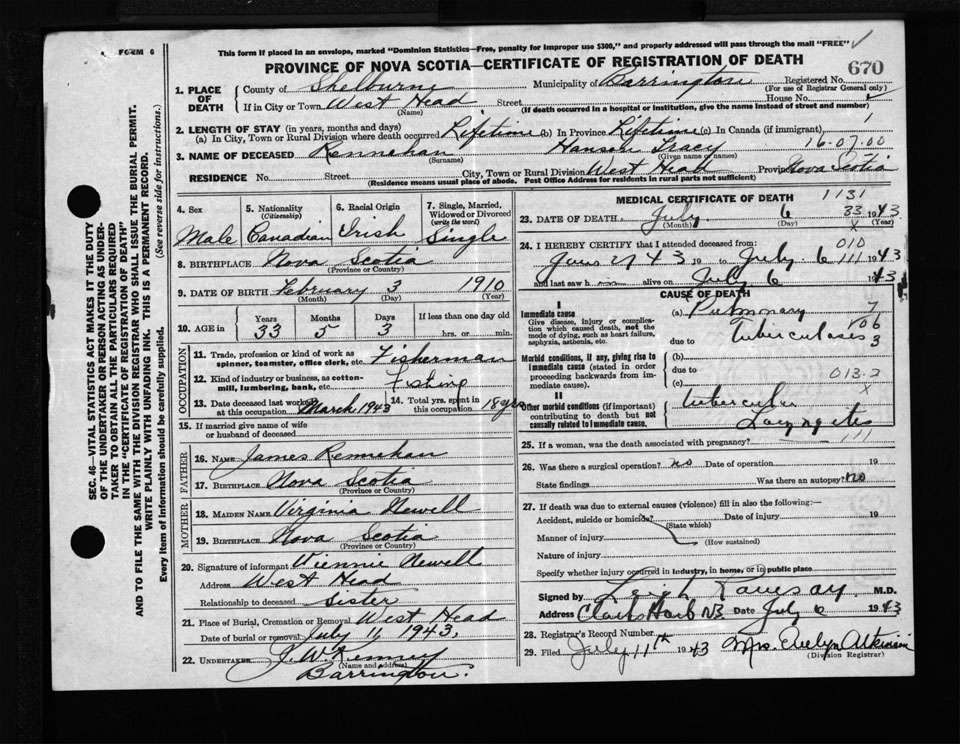 FORM 6
This form if placed in an envelope, marked "Dominion Statistics—Free, penalty for improper use $300," and properly addressed will pass through the mail "FREE"
PROVINCE OF NOVA SCOTIA—CERTIFICATE OF REGISTRATION OF DEATH
670
1. PLACE OF DEATH
County of Shelburne Municipality of Barrington Registered No.
(For use of Registrar General only)
If in City or Town West Head Street House No.
(Name) (If death occurred in a hospital or institution, give the name instead of street and number)
2. LENGTH OF STAY (in years, months and days)
(a) In City, Town or Rural Division where death occurred Lifetime (b) In Province Lifetime (c) In Canada (if immigrant)
16-07.00
3. NAME OF DECEASED Rennehan Hanson Tracy
(Surname) (Given name or names)
RESIDENCE No. Street City, Town or Rural Division West Head Province Nova Scotia
(Residence means usual place of abode. Post Office Address for residents in rural parts not sufficient)
4. Sex
Male
5. Nationality
(Citizenship)
Canadian
6. Racial Origin
Irish
7. Single, Married, Widowed or Divorced
(write the word)
Single
8. BIRTHPLACE Nova Scotia
(Province or Country)
9. DATE OF BIRTH February 3 1910
(Month) (Day) (Year)
10. AGE in
Years Months Days If less than one day old
33 5 3 hrs. or min.
OCCUPATION
11. Trade, profession or kind of work as spinner, teamster, office clerk, etc. Fisherman
12. Kind of industry or business, as cotton-mill, lumbering, bank, etc. Fishing
13. Date deceased last worked at this occupation March 1943
14. Total yrs. spent in this occupation 18 yrs
15. If married give name of wife or husband of deceased
FATHER
16. NAME James Rennehan
17. BIRTHPLACE Nova Scotia
(Province or Country)
MOTHER
18. MAIDEN NAME Virginia Newell
19. BIRTHPLACE Nova Scotia
(Province or Country)
20. Signature of informant Viennie Newell
Address West Head
Relationship to deceased Sister
21. Place of Burial, Cremation or Removal West Head
Date of burial or removal July 1943.
22. UNDERTAKER J. W. Kenney
(Name and address)
Barrington.
MEDICAL CERTIFICATE OF DEATH
1131
23. DATE OF DEATH July 6 33 1943
(Month) (Day) (Year)
24. I HEREBY CERTIFY that I attended deceased from: 010
43 19 to July 6 111 1943
and last saw h m alive on July 6 1943
CAUSE OF DEATH
I
Immediate cause
Give disease, injury or complication which caused death, not the mode of dying, such as heart failure, asphyxia, asthenia, etc.
(a) Pulmonary 7
due to Tuberculoses 3
Morbid conditions, if any, giving rise to immediate cause (stated in order proceeding backwards from immediate cause).
(b)
due to 013-2
(c) x
II
Other morbid conditions (if important) contributing to death but not causally related to immediate cause.
Tubercular
25. If a woman, was the death associated with pregnancy?
26. Was there a surgical operation? no Date of operation 19
State findings Was there an autopsy? no
27. If death was due to external causes (violence) fill in also the following:—
Accident, suicide or homicide? Date of injury 19
(State which)
Manner of injury
(How sustained)
Nature of injury
Specify whether injury occurred in industry, in home, or in public place
Signed by M.D.
Address Clarks Harb NS Date July 6 1943
28. Registrar's Record Number
29. Filed July 11th 1943 Mrs Evelyn Atkinson
(Division Registrar)
SEC. 46—VITAL STATISTICS ACT MAKES IT THE DUTY
OF THE UNDERTAKER OR PERSON ACTING AS UNDER-
TAKER TO OBTAIN ALL THE PARTICULARS REQUIRED
IN THE "CERTIFICATE OF REGISTRATION OF DEATH"
AND TO FILE THE SAME WITH THE DIVISION REGISTRAR WHO SHALL ISSUE THE BURIAL PERMIT.
WRITE PLAINLY WITH UNFADING INK. THIS IS A PERMANENT RECORD.
Every item of information should be carefully supplied. (See reverse side for instructions.)